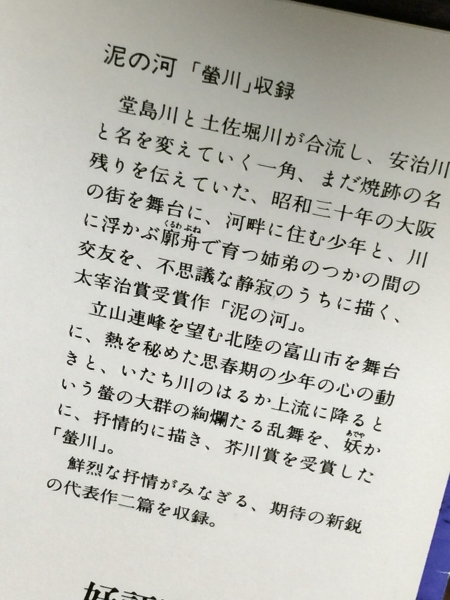 泥の河 「螢川」収録
堂島川と土佐堀川が合流し、安治川
と名を変えていく一角、まだ焼跡の名
残りを伝えていた、昭和三十年の大阪
の街を舞台に、河畔に住む少年と、川
に浮かぶ廓舟で育つ姉弟のつかの間の
交友を、不思議な静寂のうちに描く、
太宰治賞受賞作「泥の河」。
立山連峰を望む北陸の富山市を舞台
に、熱を秘めた思春期の少年の心の動
きと、いたち川のはるか上流に降ると
いう螢の大群の絢爛たる乱舞を、妖か
に、抒情的に描き、芥川賞を受賞した
「螢川」。
鮮烈な抒情がみなぎる、期待の新鋭
の代表作二篇を収録。